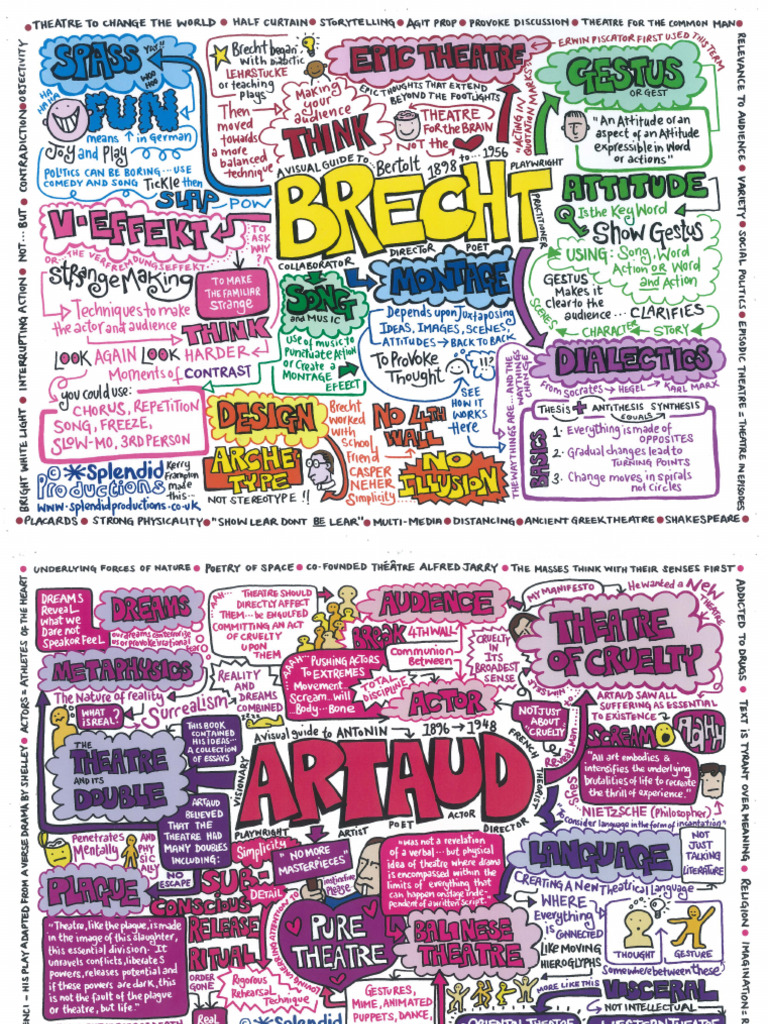 THEATRE TO CHANGE THE WORLD • HALF CURTAIN • STORYTELLING • AGIT PROP • PROVOKE DISCUSSION • THEATRE FOR THE COMMON MAN
BRIGHT WHITE LIGHT • INTERRUPTING ACTION • NOT... BUT • CONTRADICTION • OBJECTIVITY
RELEVANCE TO AUDIENCE • VARIETY • SOCIAL POLITICS • EPISODIC THEATRE = THEATRE IN EPISODES
SPASS
YAY!!
WOO HOO
HA HA HA HA
FUN
means ↑ in German
Joy and Play
POLITICS CAN BE BORING... USE
COMEDY AND SONG Tickle then
SLAP -POW
Brecht began
with didactic
LEHRSTUCKE
or teaching
plays
Then
moved
towards
a more
balanced
technique
Making
your
audience
THINK
EPIC THEATRE
ERWIN PISCATOR FIRST USED THIS TERM
EPIC THOUGHTS THAT EXTEND
BEYOND THE FOOTLIGHTS
THEATRE
FOR THE BRAIN
NOT the
"ACTING IN
QUOTATION MARKS"
GESTUS
OR GEST
"An Attitude or an
aspect of an Attitude
expressible in Word
or actions"
ATTITUDE
Is the Key Word
Show Gestus
USING: Song, Word
Action OR Word
and Action
GESTUS
Makes it
clear to the
audience... CLARIFIES
SCENES
CHARACTER
STORY
A VISUAL GUIDE TO... Bertolt 1898 to... 1956
BRECHT
PLAYWRIGHT
PRACTITIONER
COLLABORATOR
DIRECTOR
POET
V-EFFEKT
OR - THE VERFREMDUNGSEFFEKT
TO
ASK
WHY
?
Strangemaking
TO MAKE
THE FAMILIAR
STRANGE
Techniques to make
the actor and audience
THINK
LOOK AGAIN LOOK HARDER
Moments of CONTRAST
you could use:
CHORUS, REPETITION
SONG, FREEZE,
SLOW-MO, 3RD PERSON
SONG
and MUSIC
Use of music to
Punctuate Action
or Create a
MONTAGE
EFFECT
MONTAGE
Depends upon Juxtaposing
IDEAS, IMAGES, SCENES,
ATTITUDES → BACK TO BACK
To PROVOKE
Thought
!!?
SEE
HOW IT
WORKS
Here
DIALECTICS
From Socrates → HEGEL → KARL MARX
THE WAY THINGS ARE... AND THE WAY THINGS CHANGE
THESIS + ANTITHESIS SYNTHESIS
EQUALS
BASICS
1. Everything is made of
OPPOSITES
2. Gradual changes lead to
TURNING POINTS
3. Change moves in spirals
not circles
DESIGN
ARCHE-
TYPE
NOT STEREOTYPE !!
Brecht
worked
with
School
friend
CASPER
NEHER
Simplicity...
NO 4TH
WALL
NO
ILLUSION
© Splendid
Productions
Kerry
Frampton
made
this...
www.splendidproductions.co.uk
PLACARDS • STRONG PHYSICALITY • "SHOW LEAR DONT BE LEAR" • MULTI-MEDIA • DISTANCING • ANCIENT GREEK THEATRE • SHAKESPEARE
UNDERLYING FORCES OF NATURE • POETRY OF SPACE • CO-FOUNDED THEÂTRE ALFRED JARRY • THE MASSES THINK WITH THEIR SENSES FIRST
ENCI - HIS PLAY ADAPTED FROM A VERSE DRAMA BY SHELLEY • ACTORS = ATHLETES OF THE HEART
ADDICTED TO DRUGS • TEXT IS TYRANT OVER MEANING • RELIGION • IMAGINATION = R
DREAMS
Reveal
what we
Dare not
Speak or FEEL
DREAMS
our dreams can terrorise
us or provoke us irrational
fear
METAPHYSICS
The Nature of reality
WHAT
IS REAL?
Surrealism
REALITY
AND
DREAMS
COMBINED
AAH...
THEATRE SHOULD
DIRECTLY AFFECT
THEM... BE ENGULFED
COMMITTING AN ACT
OF CRUELTY
UPON
THEM
AUDIENCE
BREAK 4TH WALL
Communion
Between
"AAAH"
PUSHING ACTORS
TO EXTREMES
Movement...
Scream...will
Body...Bone
TOTAL
DISCIPLINE
ACTOR
CRUELTY
IN
ITS
BROADEST
SENSE
MY MANIFESTO
He wanted a NEW
THEATRE
THEATRE
OF CRUELTY
NOT JUST
ABOUT
"CRUELTY"
ARTAUD SAW ALL
SUFFERING AS ESSENTIAL
TO EXISTENCE
SCREAM
AGHH
"All art embodies &
intensifies the underlying
brutalities of life to recreate
the thrill of experience."
Says
NIETZSCHE (Philosopher)
"Consider language in the form of incantation"
THE
THEATRE
AND ITS
DOUBLE
THIS BOOK
CONTAINED
HIS IDEAS...
A COLLECTION
OF ESSAYS
ARTAUD
BELIEVED
THAT THE
THEATRE HAD
MANY DOUBLES
INCLUDING:
A visual guide to ANTONIN 1896 → 1948
ARTAUD
VISIONARY
FRENCH
THEORIST
PLAYWRIGHT
ARTIST
POET
ACTOR
DIRECTOR
Penetrates
Mentally
AND
PHY
SIC
ALLY
NO
ESCAPE
PLAGUE
"Theatre, like the plague, is made
in the image of this slaughter,
this essential division. It
unravels conflicts, liberates
powers, releases potential and
if these powers are dark, this
is not the fault of the plague
or theatre, but life."
SUB-
CONSCIOUS
RELEASE
RITUAL
ORDER
GONE
Real
Simplicity
DETAIL
"NO MORE
MASTERPIECES"
instinctive
Please
PURE
THEATRE
Rigorous
Rehearsal
Technique
© Splendid
"was not a revelation
of a verbal... but physical
idea of theatre where drama
is encompassed within the
limits of everything that
can happen onstage inde-
pendent of a written script."
BALINESE
THEATRE
GESTURES,
MIME, ANIMATED
PUPPETS, DANCE,
LANGUAGE
NOT
JUST
TALKING
LITERATURE
CREATING A NEW Theatrical Language
WHERE
Everything
is CONNECTED
LIKE MOVING
HIEROGLYPHS
THOUGHT
GESTURE
Somewhere between these
MORE LIKE THIS
VISCERAL
NOT INTELLECTUAL